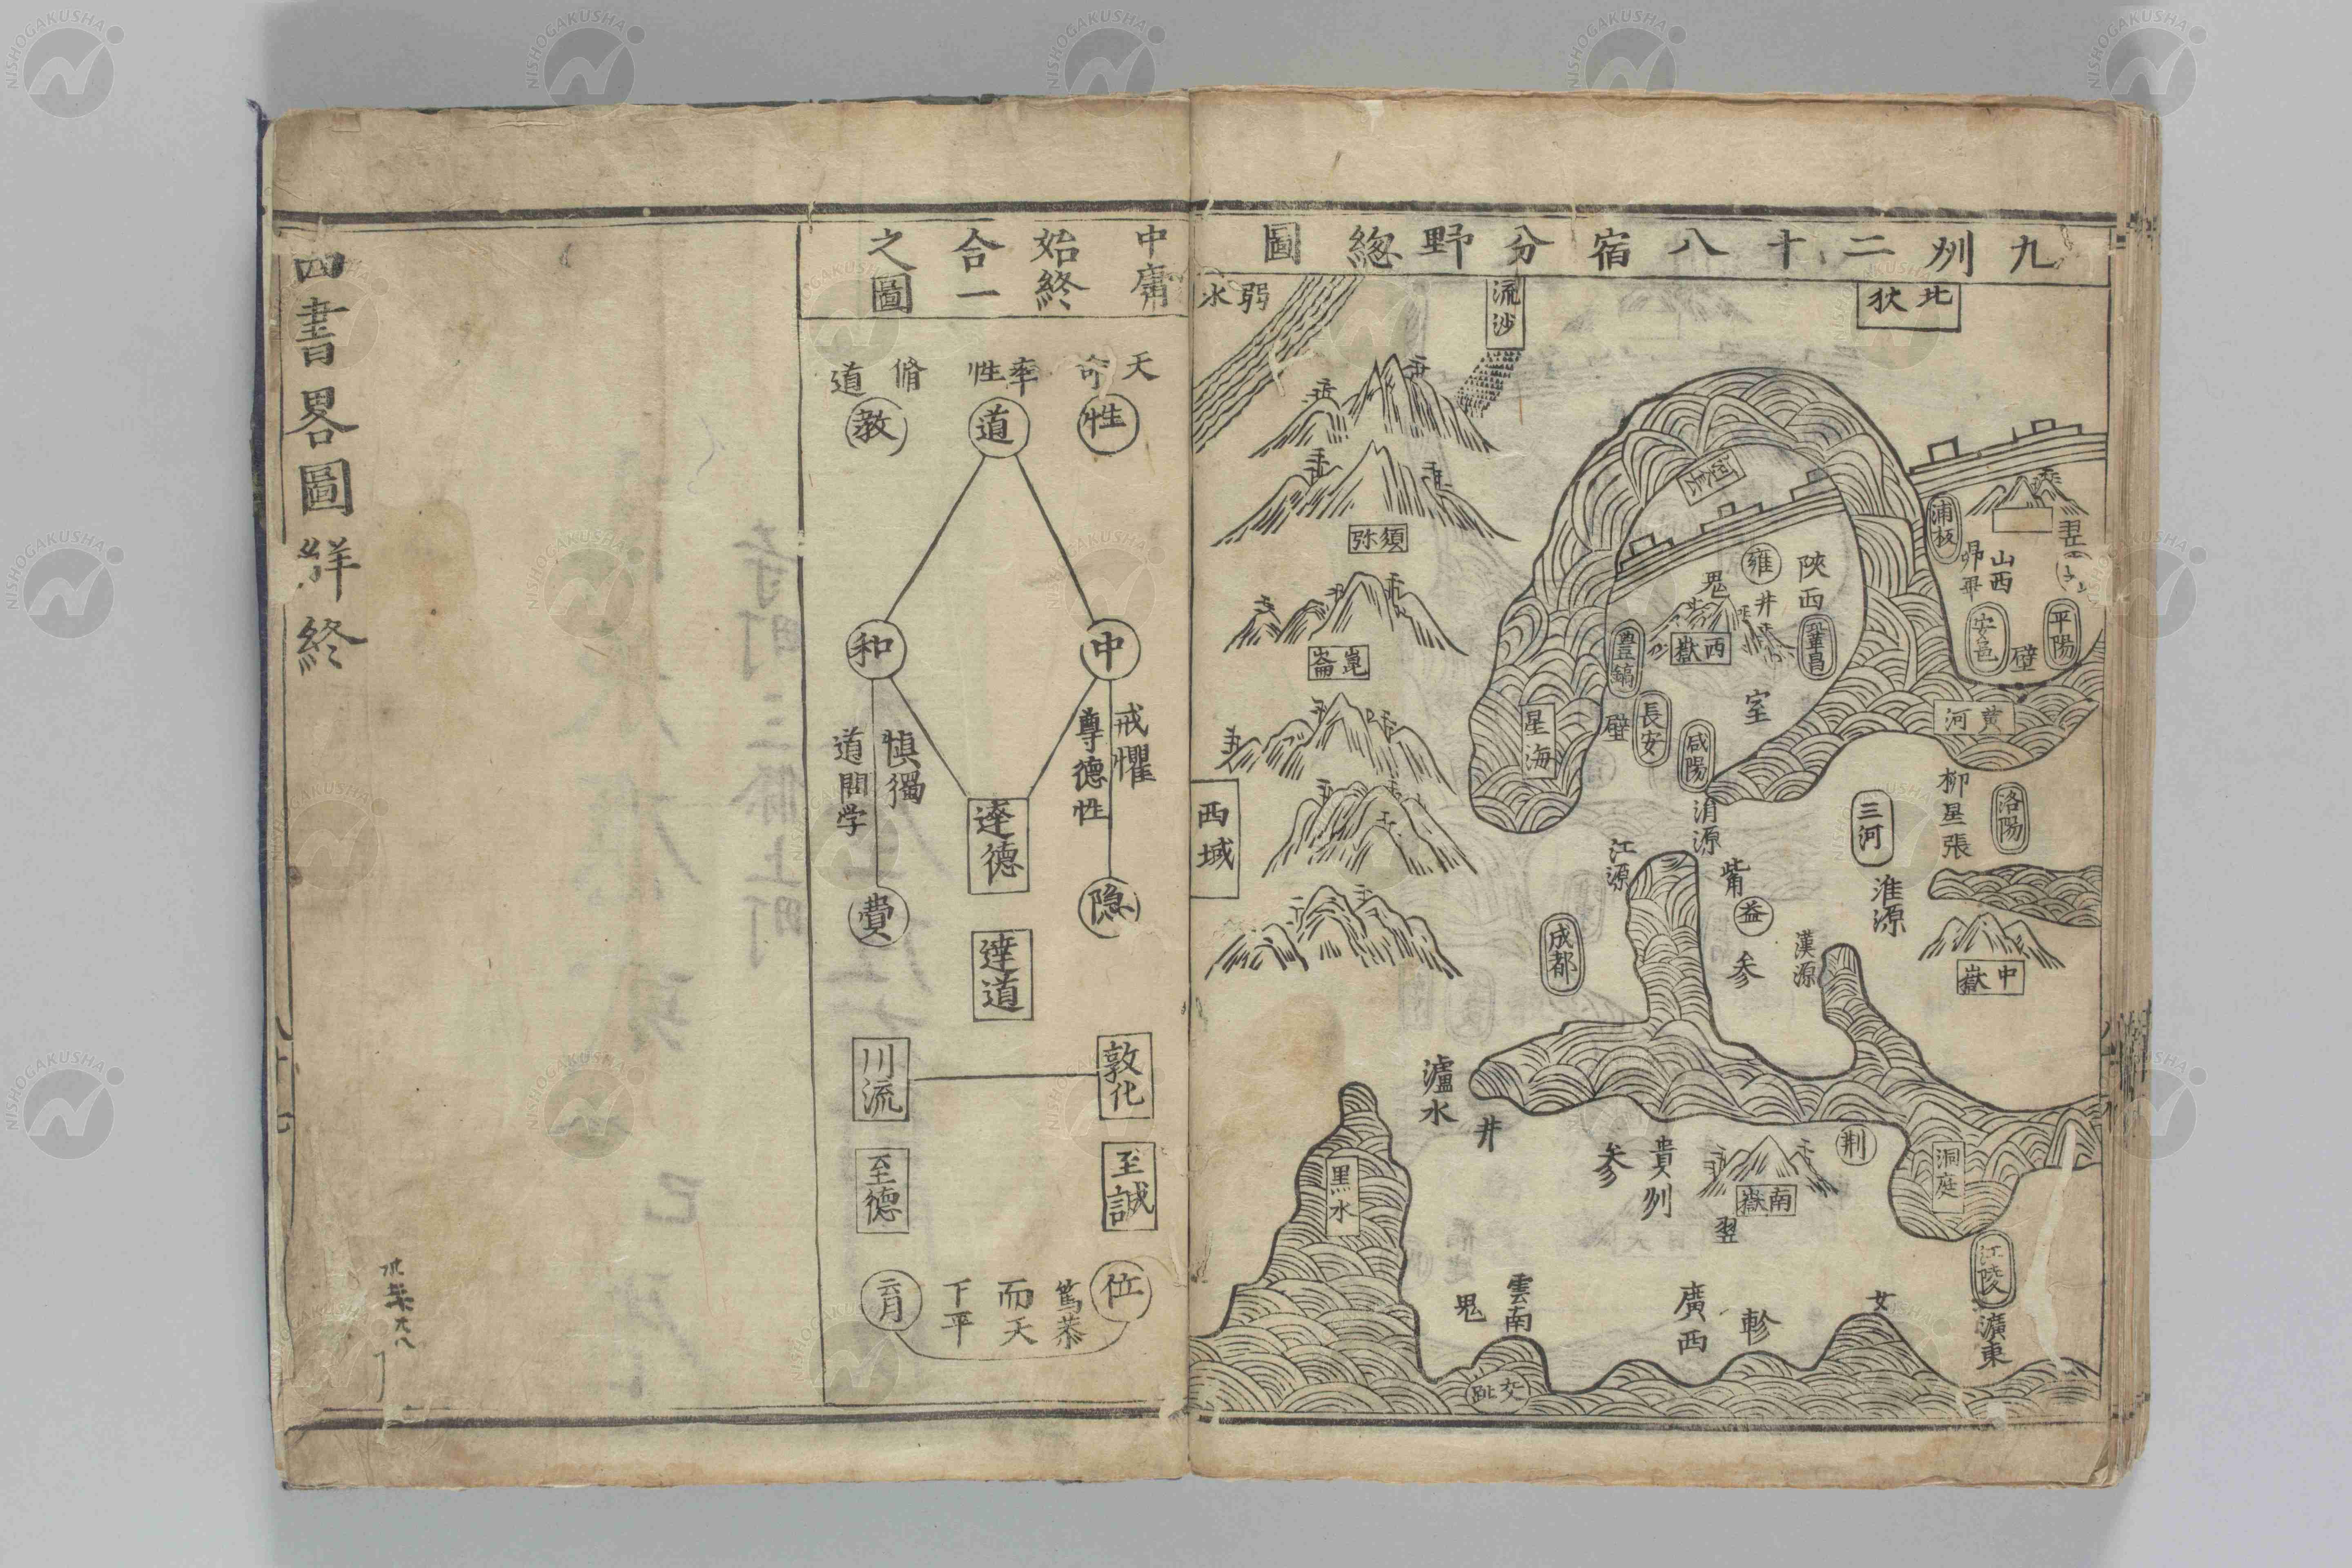 九州二十八宿分野總圖
北狄
流沙
弱水
河套
蒲坂
山西
昴畢
安邑
平陽
壁
陝西
雍
井
鬼
西嶽
鞏昌
豊鎬
長安
壁
咸陽
室
星海
黄河
須弥
崑崙
西域
渭源
江源
觜
益
参
漢源
三河
柳星張
洛陽
淮源
中嶽
成都
瀘水
井
黒水
貴州
参
南嶽
翌
荆
洞庭
江陵
廣東
女
軫
廣西
雲南
鬼
交趾
中庸始終合一之圖
天命
性
率性
道
脩道
教
中
和
戒懼
尊德性
慎獨
道問学
達德
達道
隐
費
敦化
川流
至誠
至德
位
育
篤恭而天下平
四書畧圖詳終
NISHOGAKUSHA